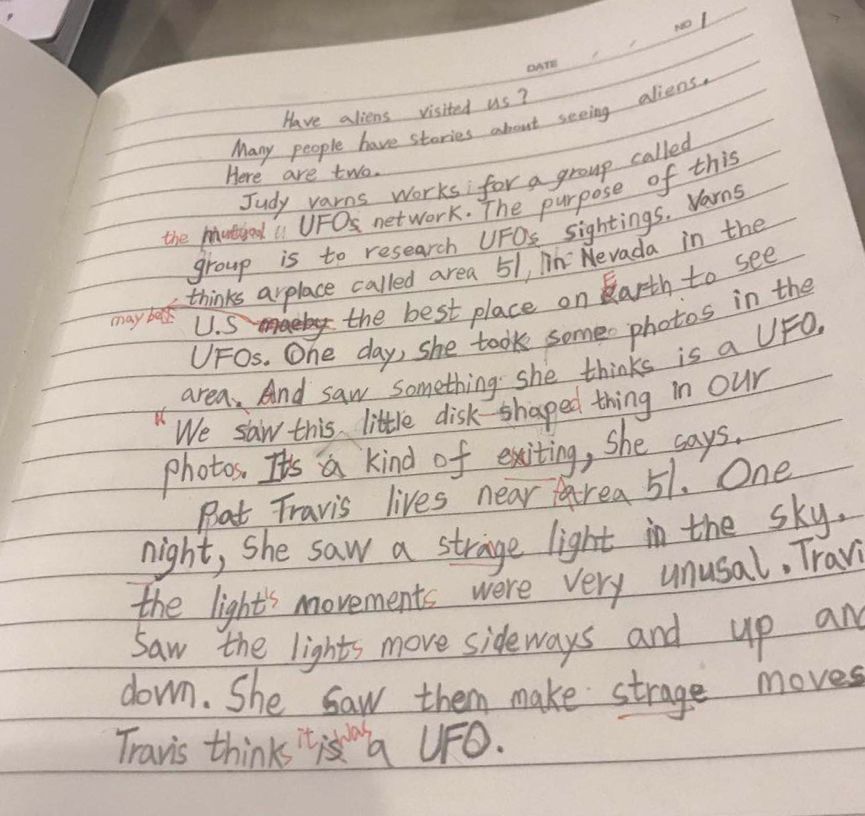 NO 1
DATE
Have aliens visited us?
Many people have stories about seeing aliens.
Here are two.
Judy varns works for a group called
the mutual UFOs network. The purpose of this
group is to research UFOs sightings. Varns
thinks a place called area 51, in Nevada in the
may be U.S maeby the best place on Earth to see
UFOs. One day, she took some photos in the
area. And saw something she thinks is a UFO.
"We saw this little disk-shaped thing in our
photos. It's a kind of exiting, She says.
Pat Travis lives near Area 51. One
night, She saw a strage light in the sky.
the light's movements were very unusal. Travi
Saw the lights move sideways and up an
down. She saw them make strage moves
Travis thinks it is was a UFO.